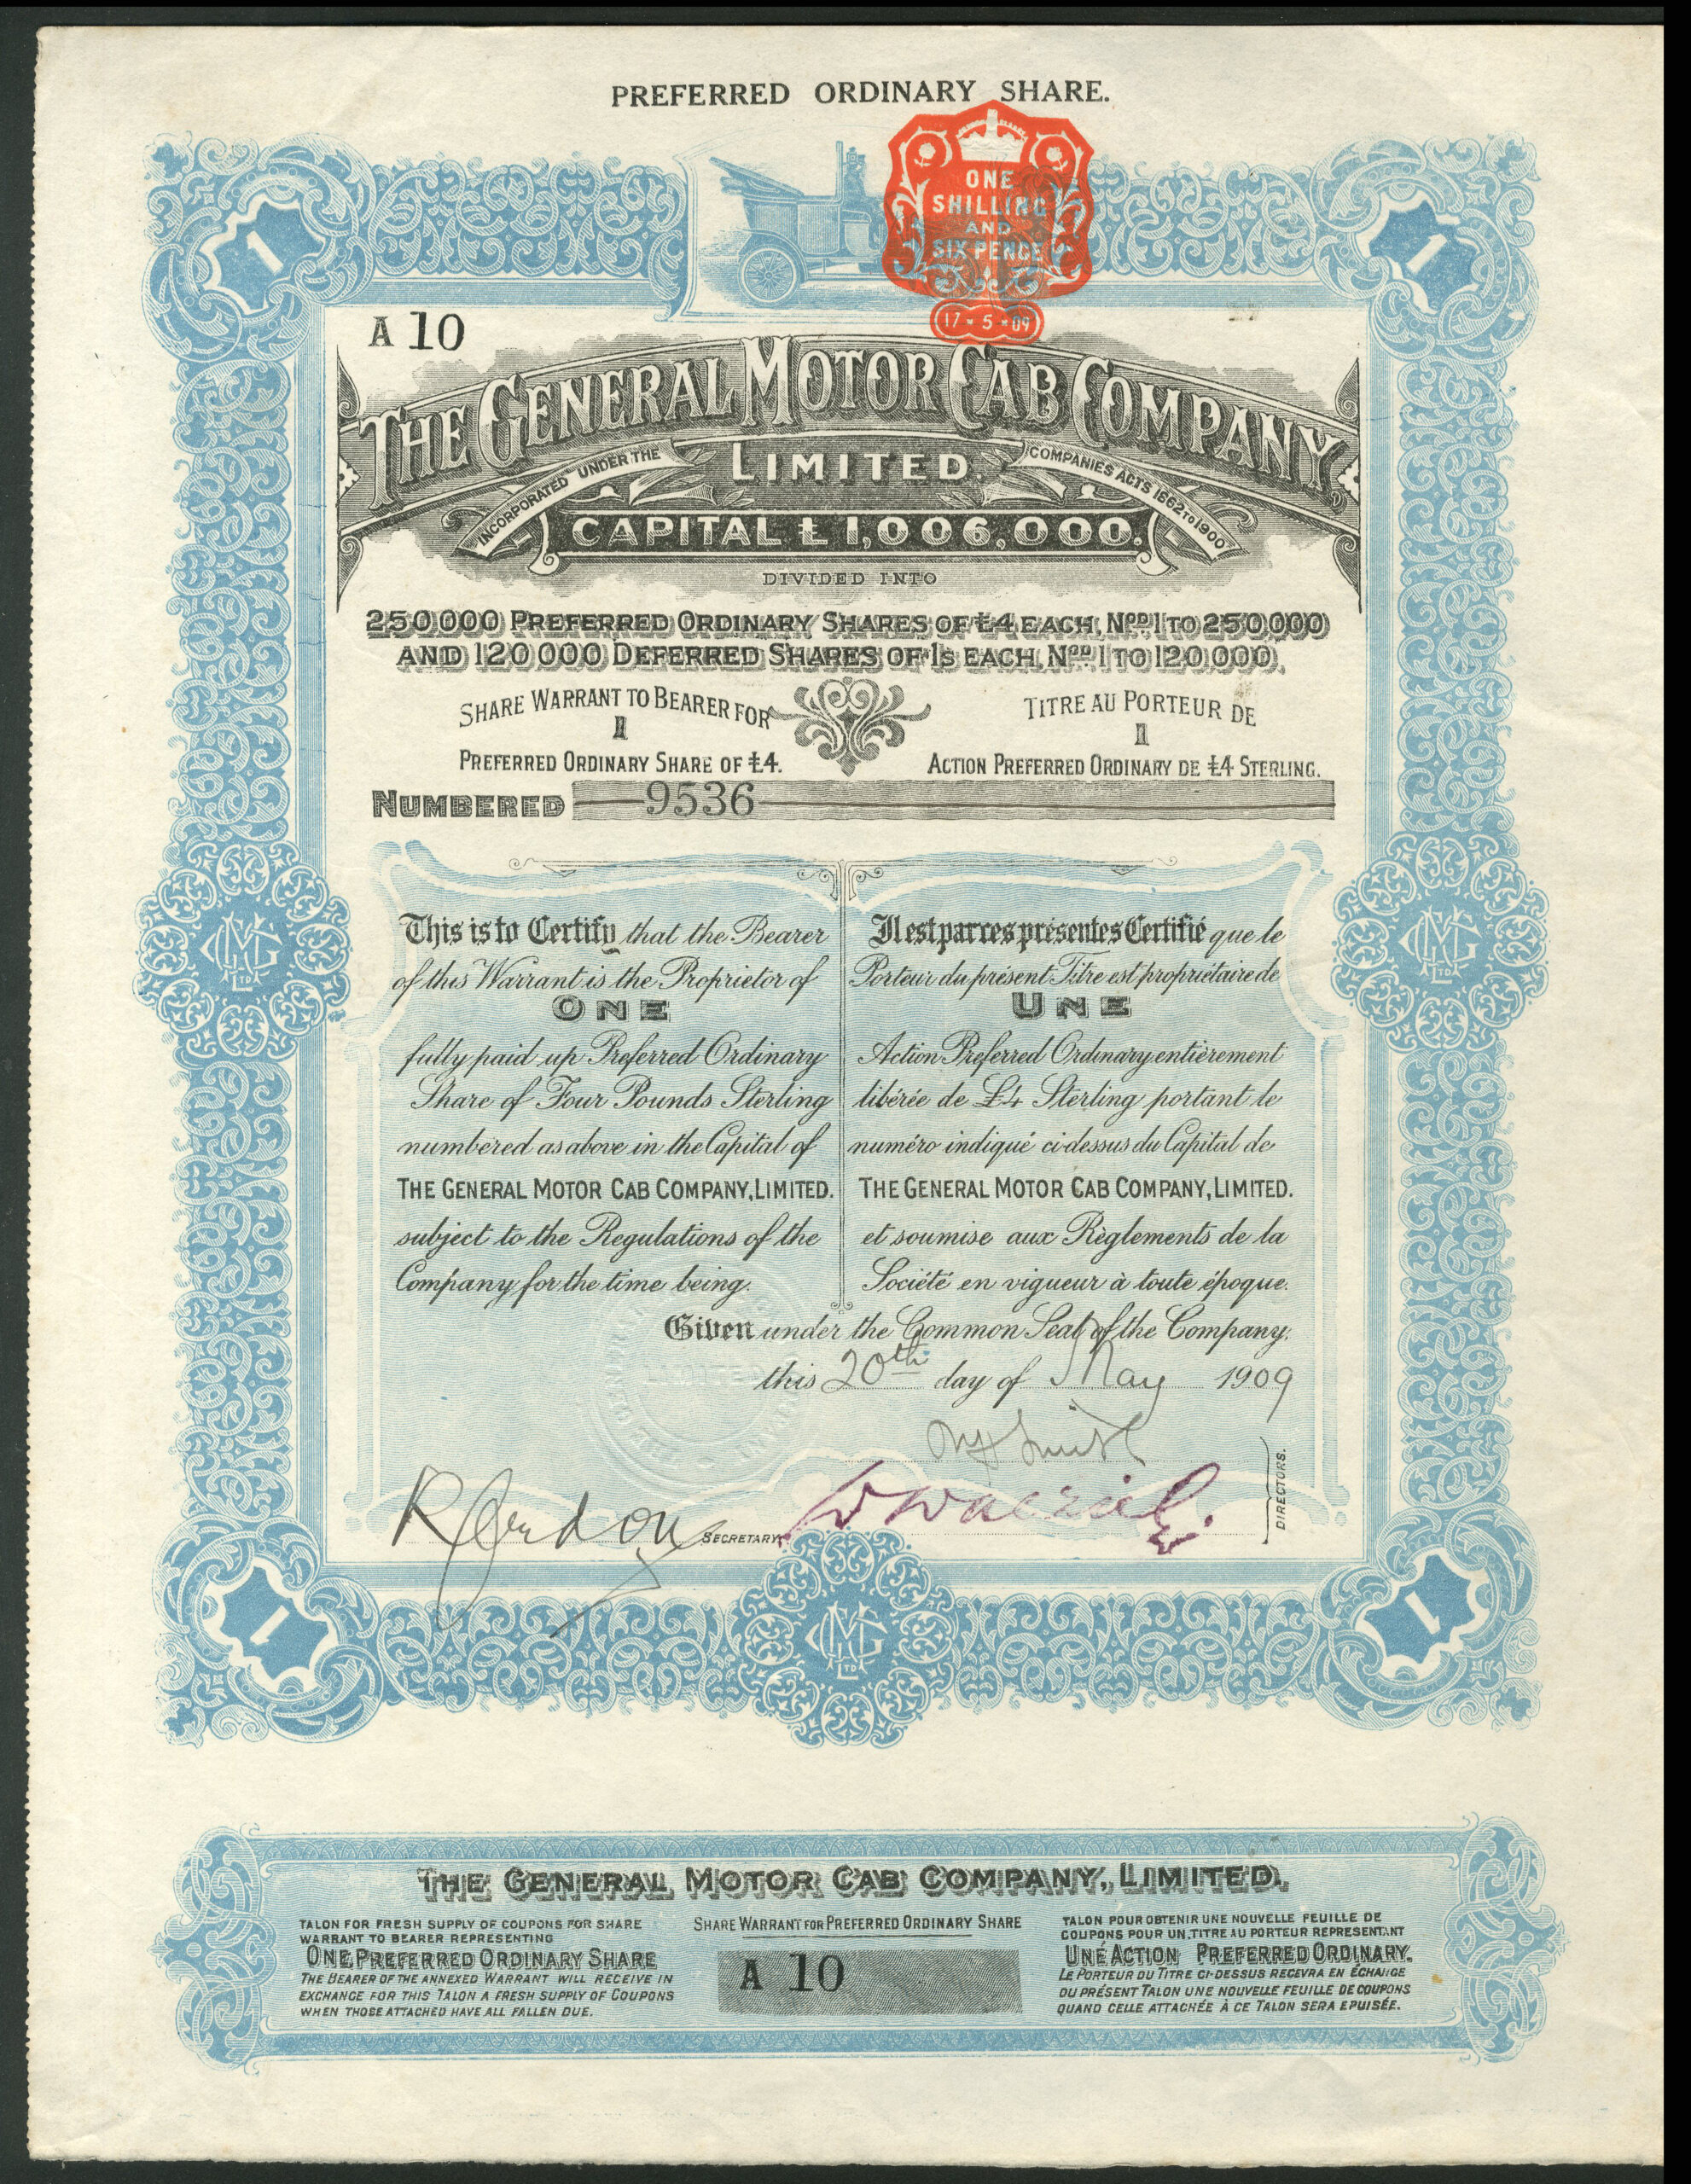 PREFERRED ORDINARY SHARE.
ONE
SHILLING
AND
SIX PENCE
17 · 5 · 09
1
1
A 10
THE GENERAL MOTOR CAB COMPANY,
LIMITED.
INCORPORATED UNDER THE COMPANIES ACTS 1862 TO 1900
CAPITAL £1,006,000.
DIVIDED INTO
250,000 PREFERRED ORDINARY SHARES OF £4 EACH, NOD 1 TO 250,000
AND 120,000 DEFERRED SHARES OF 1S EACH, NOD 1 TO 120,000.
SHARE WARRANT TO BEARER FOR
1
PREFERRED ORDINARY SHARE OF £4.
TITRE AU PORTEUR DE
1
ACTION PREFERRED ORDINARY DE £4 STERLING.
NUMBERED 9536
This is to Certify that the Bearer
of this Warrant is the Proprietor of
ONE
fully paid up Preferred Ordinary
Share of Four Pounds Sterling
numbered as above in the Capital of
THE GENERAL MOTOR CAB COMPANY, LIMITED.
subject to the Regulations of the
Company for the time being.
Il est par ces présentes Certifié que le
Porteur du présent Titre est propriétaire de
UNE
Action Preferred Ordinary entièrement
libérée de £4 Sterling portant le
numéro indiqué ci-dessus du Capital de
THE GENERAL MOTOR CAB COMPANY, LIMITED.
et soumise aux Règlements de la
Société en vigueur à toute époque.
Given under the Common Seal of the Company,
this 20th day of May 1909
SECRETARY
DIRECTORS.
GMC
LTD
GMC
LTD
1
1
GMC
LTD
THE GENERAL MOTOR CAB COMPANY, LIMITED.
TALON FOR FRESH SUPPLY OF COUPONS FOR SHARE
WARRANT TO BEARER REPRESENTING
ONE PREFERRED ORDINARY SHARE
THE BEARER OF THE ANNEXED WARRANT WILL RECEIVE IN
EXCHANGE FOR THIS TALON A FRESH SUPPLY OF COUPONS
WHEN THOSE ATTACHED HAVE ALL FALLEN DUE.
SHARE WARRANT FOR PREFERRED ORDINARY SHARE
A 10
TALON POUR OBTENIR UNE NOUVELLE FEUILLE DE
COUPONS POUR UN TITRE AU PORTEUR REPRESENTANT
UNE ACTION PREFERRED ORDINARY.
LE PORTEUR DU TITRE CI-DESSUS RECEVRA EN ÉCHANGE
DU PRÉSENT TALON UNE NOUVELLE FEUILLE DE COUPONS
QUAND CELLE ATTACHÉE À CE TALON SERA EPUISÉE.